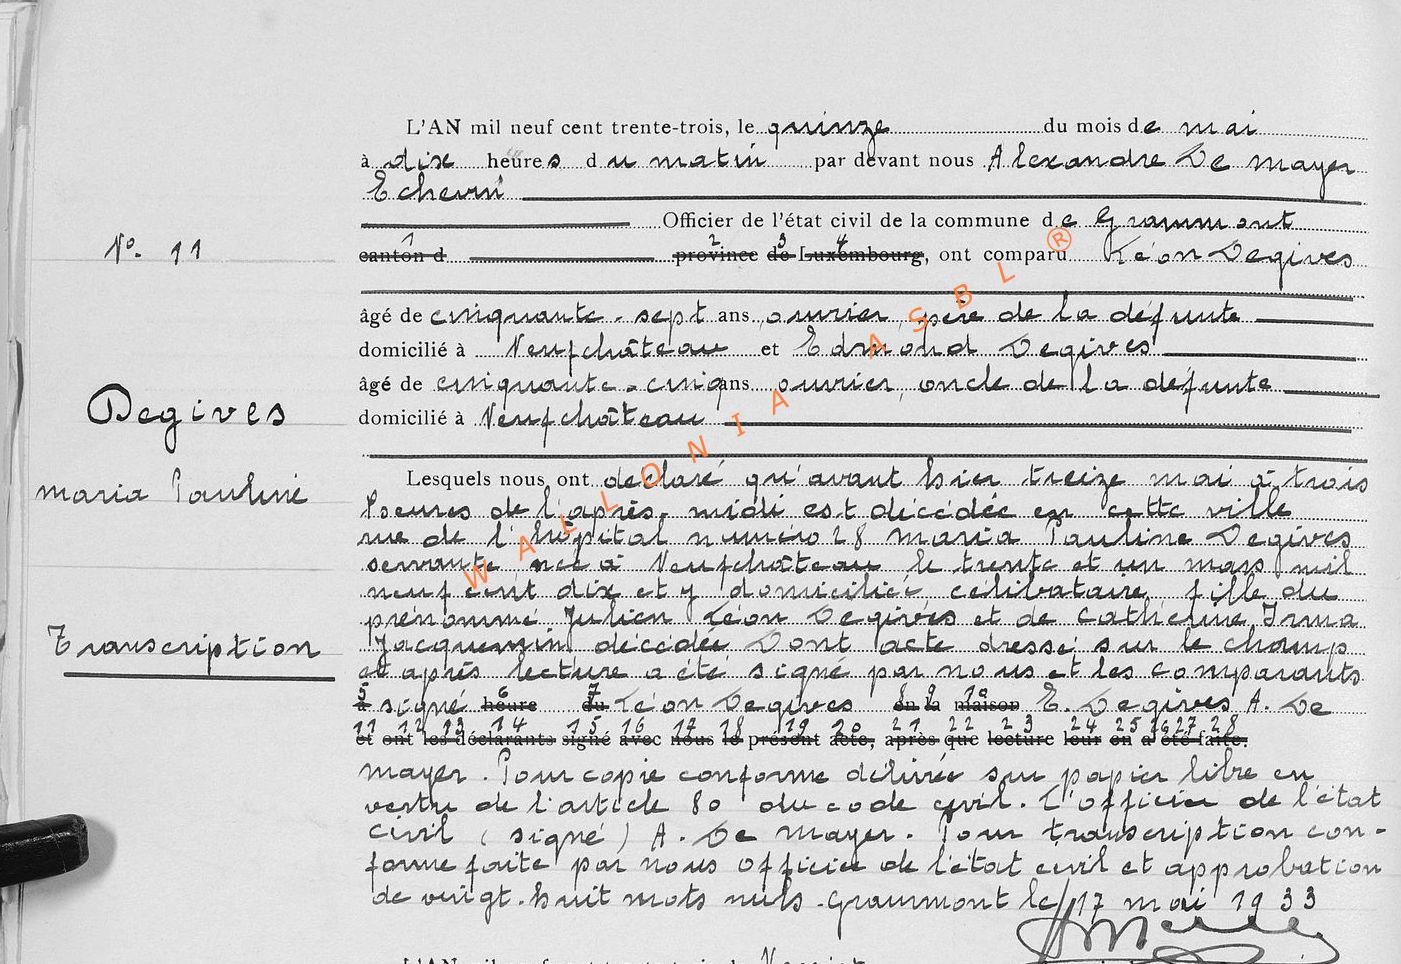 L'AN mil neuf cent trente-trois, le quinze du mois de mai
à dix heures du matin par devant nous Alexandre De Mayer
Echevin
Officier de l'état civil de la commune de Grammont
N° 11
1 2 3 4
canton d province de Luxembourg, ont comparu Léon Degives
âgé de cinquante-sept ans, ouvrier, père de la défunte
domicilié à Neufchâteau et Edmond Degives
âgé de cinquante-cinq ans ouvrier, oncle de la défunte
Degives
domicilié à Neufchâteau
maria Pauline
Lesquels nous ont declaré qu'avant hier treize mai à trois
heures de l'après-midi est décédée en cette ville
rue de l'hôpital numéro 28 Maria Pauline Degives
servante née à Neufchâteau le trente et un mars mil
neuf cent dix et y domiciliée célibataire fille du
prénommé Julien Léon Degives et de Cathérine Irma
Transcription
Jacquemin décédée Dont acte dressé sur le champ
et après lecture a été signé par nous et les comparants
5 6 7 8 9 10
à signé heure du Léon Degives en la maison E. Degives A. De
11 12 13 14 15 16 17 18 19 20 21 22 23 24 25 26 27 28
et ont les déclarants signé avec nous le présent acte, après que lecture leur en a été faite.
mayer. Pour copie conforme délivrée sur papier libre en
vertu de l'article 80 du code civil. L'officier de l'état
civil (signé) A. De Mayer. Pour transcription con-
forme faite par nous officier de l'état civil et approbation
de vingt-huit mots nuls. Grammont le 17 mai 1933
WALLONIA ASBL ®